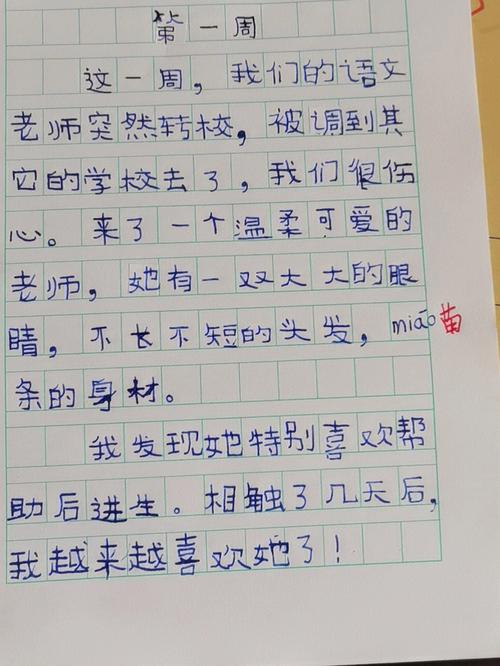 第一周
这一周，我们的语文
老师突然转校，被调到其
它的学校去了，我们很伤
心。来了一个温柔可爱的
老师，她有一双大大的眼
睛，不长不短的头发，miáo苗
条的身材。
我发现她特别喜欢帮
助后进生。相触了几天后，
我越来越喜欢她了！